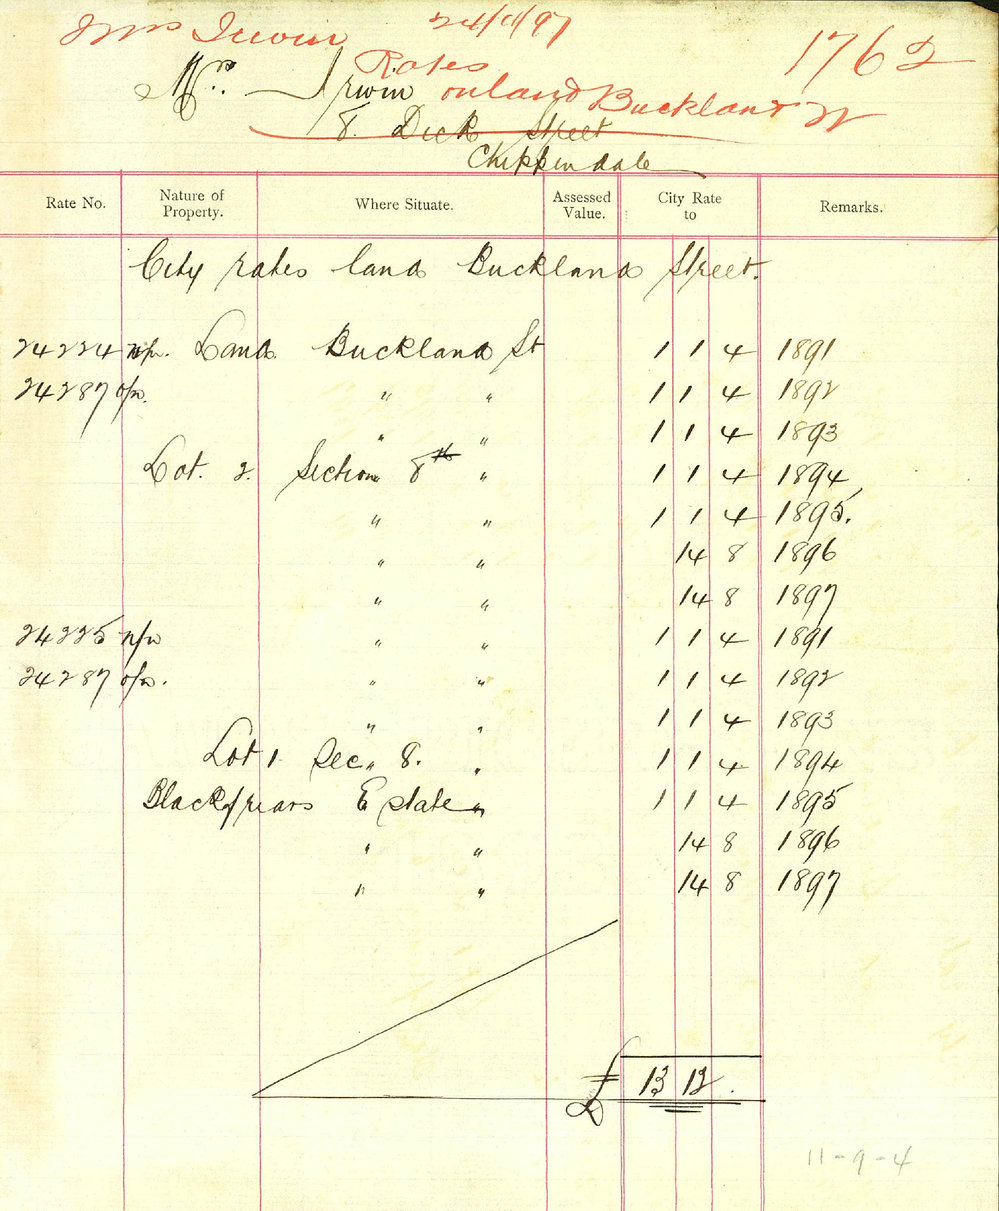 Mrs Irwin 24/11/97 1762
Rates
on land Buckland St
Mrs. — Irwin
8. Dick Street
Chippendale
Rate No. Nature of Property. Where Situate. Assessed Value. City Rate to Remarks.
City rates land Buckland Street.
24224 n/w. Land Buckland St 1 1 4 1891
24287 o/w. " " 1 1 4 1892
" " 1 1 4 1893
Lot. 2. Section 8th " 1 1 4 1894
" " 1 1 4 1895.
" " 14 8 1896
" " 14 8 1897
24225 n/w " " 1 1 4 1891
24287 o/w. " " 1 1 4 1892
" " 1 1 4 1893
Lot 1. Sec. 8. " 1 1 4 1894
Blackfriars Estate " 1 1 4 1895
" " 14 8 1896
" " 14 8 1897
£ 13 12 .
11-9-4